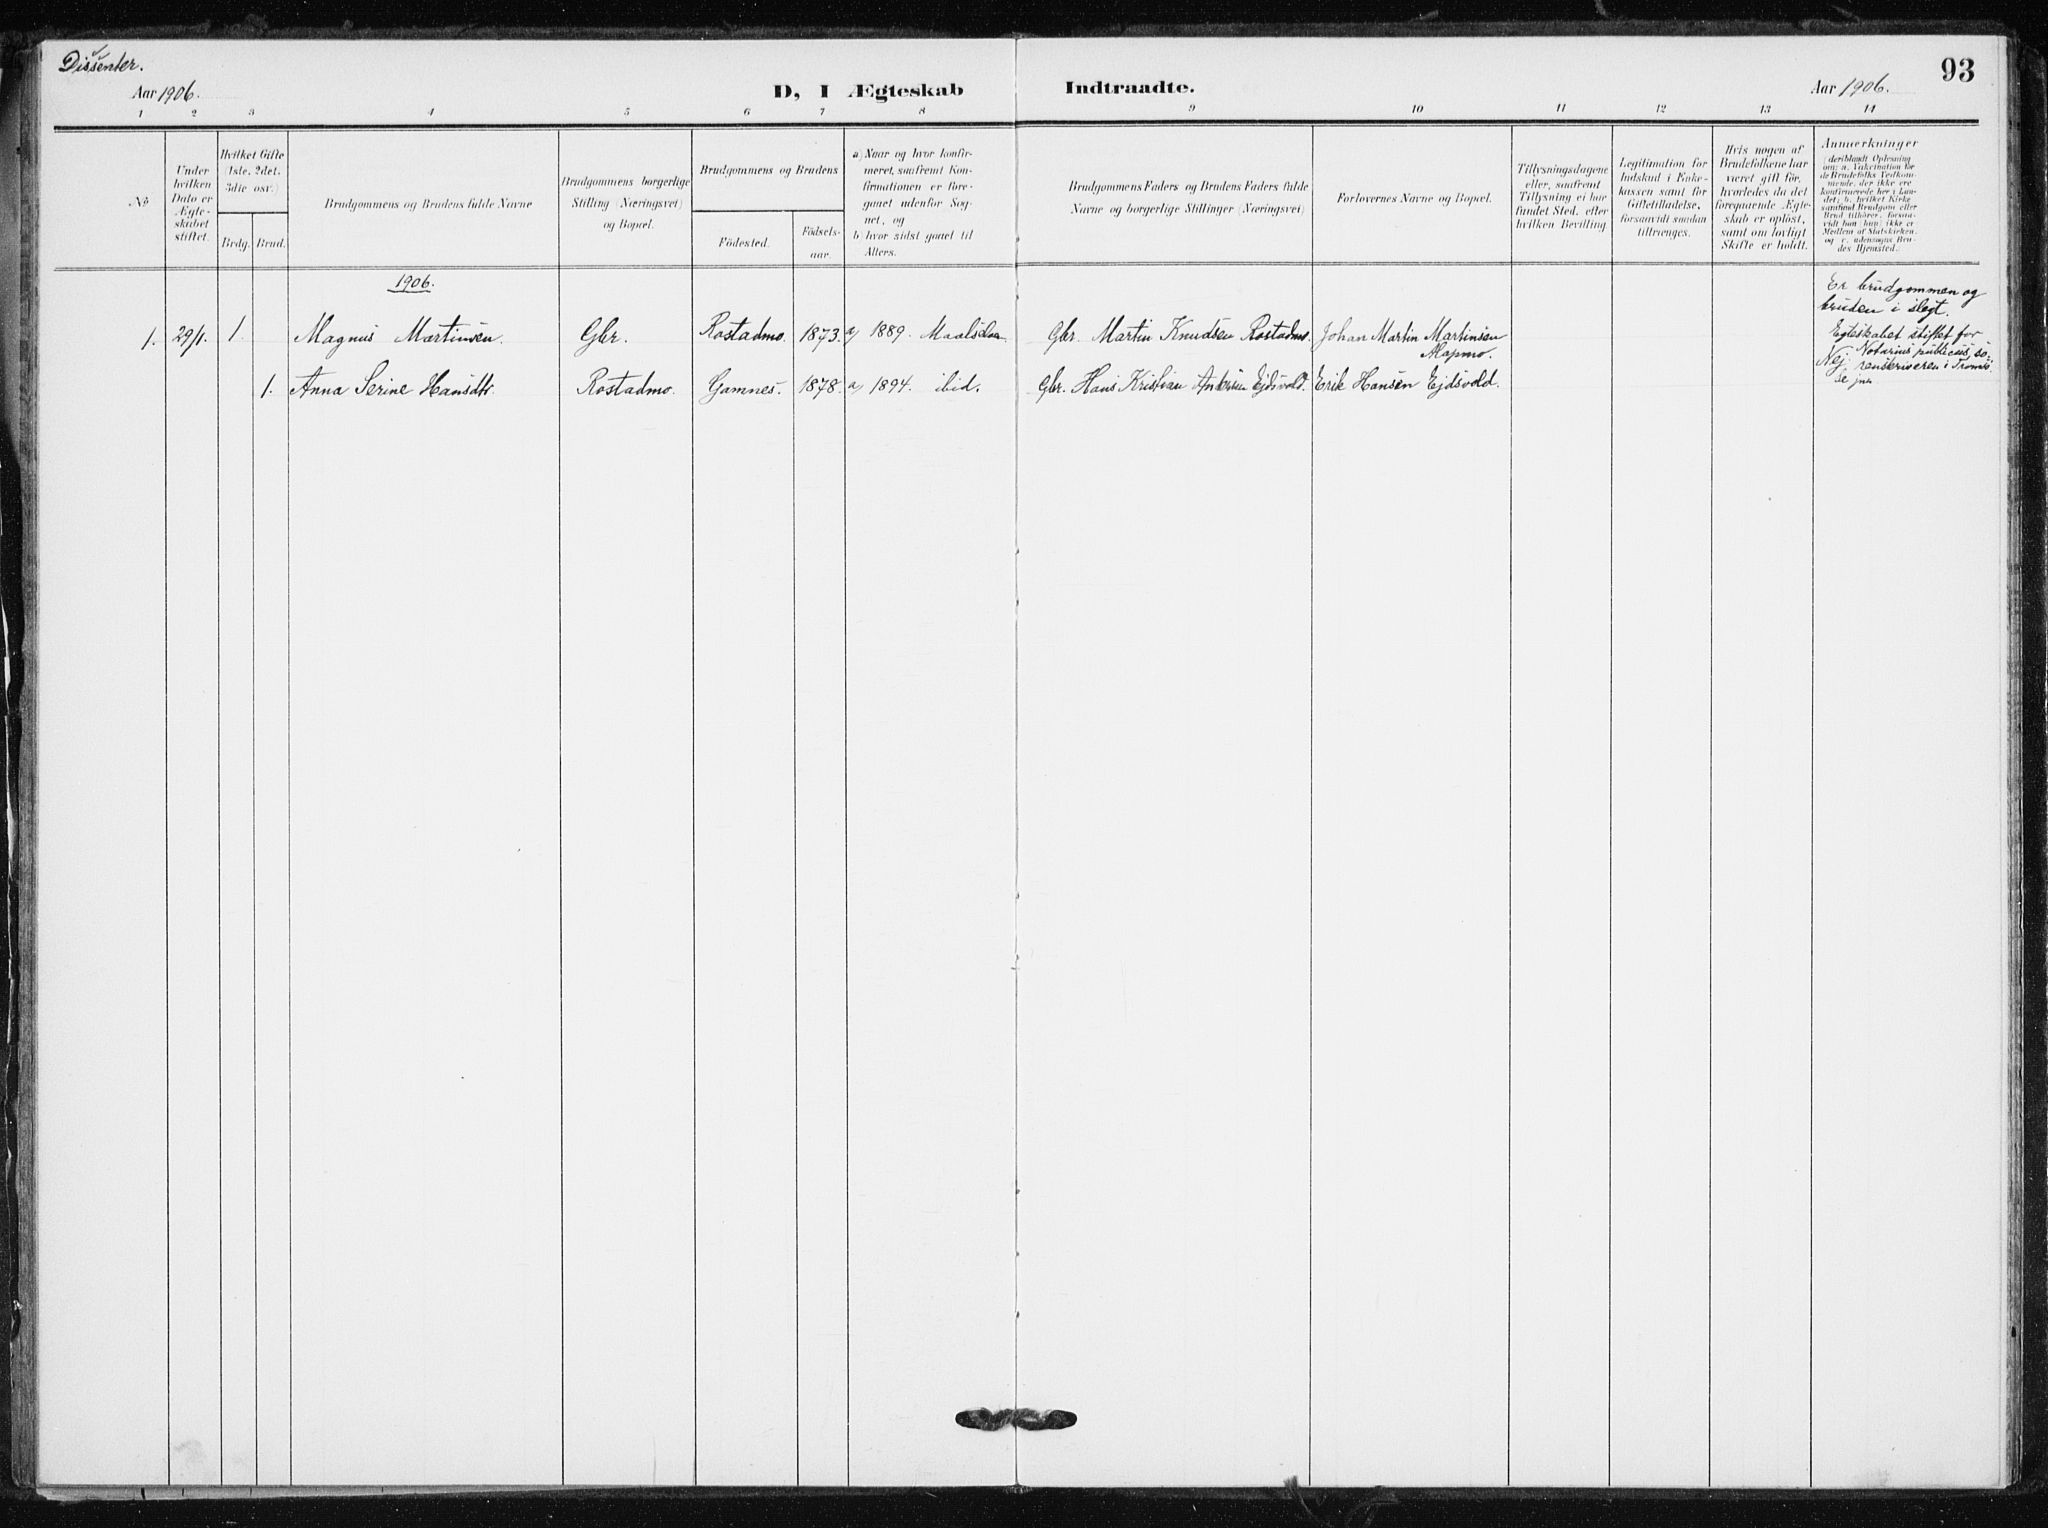 Dissenter.
93
Aar 1906.
D, I Ægteskab Indtraadte.
Aar 1906.
1 2 3 4 5 6 7 8 9 10 11 12 13 14
No
Under
hvilken
Dato er
Ægte-
skabet
stiftet.
Hvilket Gifte
(1ste, 2det,
3die osv.)
Brdg. Brud.
Brudgommens og Brudens fulde Navne
Brudgommens borgerlige
Stilling (Næringsvei)
og Bopæl.
Brudgommens og Brudens
Födested.
Födsels-
aar.
a) Naar og hvor konfir-
meret, saafremt Kon-
firmationen er fore-
gaaet udenfor Sog-
net, og
b) hvor sidst gaaet til
Alters.
Brudgommens Faders og Brudens Faders fulde
Navne og borgerlige Stillinger (Næringsvei)
Forlovernes Navne og Bopæl.
Tillysningsdagene
eller, saafremt
Tillysning ei har
fundet Sted, efter
hvilken Bevilling
Legitimation for
Indskud i Enke-
kassen samt for
Giftetilladelse,
forsaavidt saadan
tiltrænges.
Hvis nogen af
Brudefolkene har
været gift för,
hvorledes da det
foregaaende Ægte-
skab er oplöst,
samt om lovligt
Skifte er holdt.
Anmerkninger
(deriblandt Oplysning
om: a. Vakcination for
de Brudefolks Vedkom-
mende, der ikke ere
konfirmerede her i Lan-
det; b. hvilket Kirke-
samfund Brudgom eller
Brud tilhörer, forsaa-
vidt han (hun) ikke er
Medlem af Statskirken
og c. udensogns Bru-
des Hjemsted.
1906.
Er brudgommen og
bruden i slegt.
1. 29/1. 1. Magnus Martinsen. Gbr. Rostadmo. 1873. a) 1889. Gbr. Martin Knudsen Rostadmo. Johan Martin Martinsen
Egteskabet stiftet for
Notarius publicus, so-
Nej renskriveren i Tromsö
1. Anna Serine Hansdtr. Rostadmo. Gamnes. 1878. a) 1894. ibid. Gbr. Hans Kristian Andersen Ejdsvold. Erik Hansen Ejdsvold.